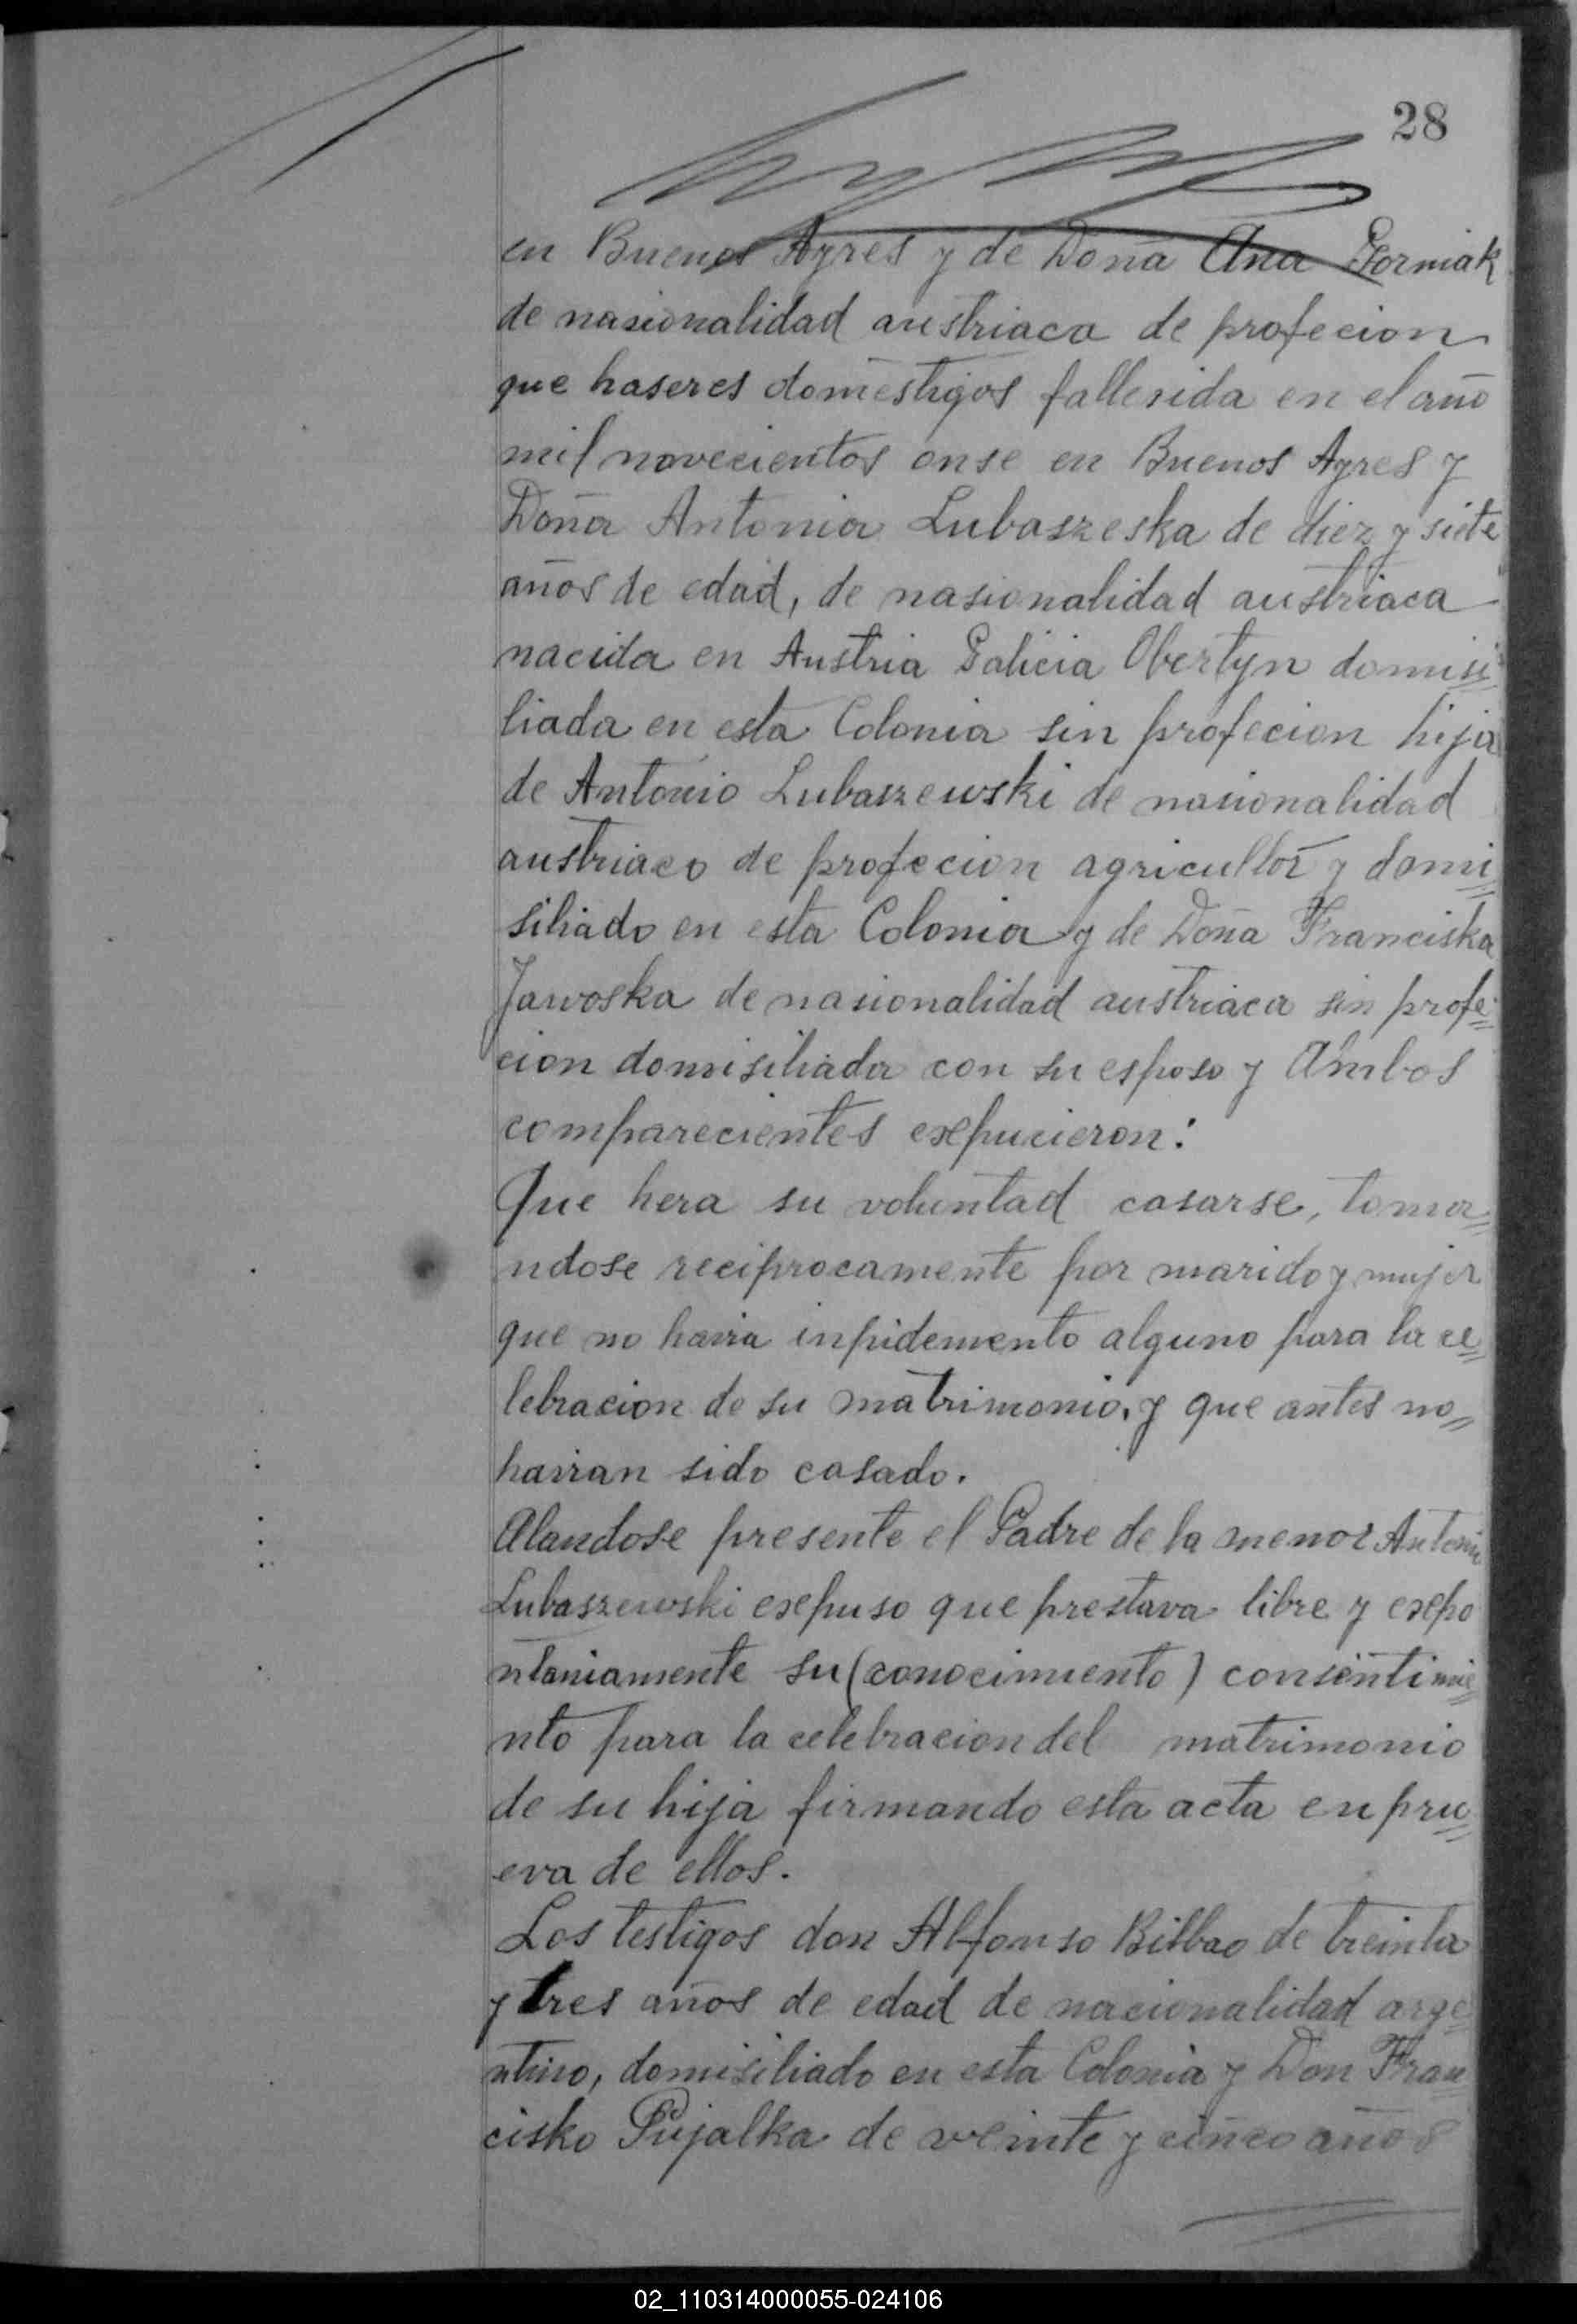 28
en Buenos Ayres y de Doña Ana Gorniak
de nasionalidad austriaca de profecion
que haseres domestigos fallesida en el año
mil novecientos onse en Buenos Ayres y
Doña Antonia Lubaszeska de diez y siete
años de edad, de nasionalidad austriaca
nacida en Austria Galicia Obertyn domisi
liada en esta Colonia sin profecion hija
de Antonio Lubaszewski de nasionalidad
austriaco de profecion agricultor y domi
siliado en esta Colonia y de Doña Franciska
Jawoska de nasionalidad austriaca sin profe
cion domisiliada con su esposo y Ambos
comparecientes exepucieron:
Que hera su voluntad casarse, toma
ndose reciprocamente por marido y mujer
que no havia inpidemento alguno para la ce
lebracion de su matrimonio, y que antes no
havian sido casado.
Alandose presente el Padre de la menor Antonio
Lubaszewski exepuso que prestava libre y exepo
ntaniamente su (conocimiento) consentimie
nto para la celebracion del matrimonio
de su hija firmando esta acta en pru
eva de ellos.
Los testigos don Alfonso Bilbao de treinta
y tres años de edad de nacionalidad arge
ntino, domisiliado en esta Colonia y Don Fran
cisko Pujalka de veinte y cinco años
02_110314000055-024106